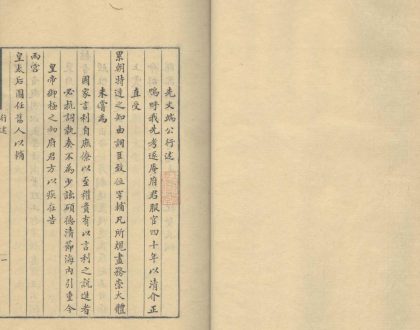 先文端公行述
嗚呼我先考遂庵府君服官四十年以清介正
直受
累朝特達之知由詞臣致位宰輔凡所規畫務崇大體
未嘗為
國家言利自庶僚以至權貴有以言利之說進者
必抗詞執奏不為少詘碩德清節海內引重今
皇帝御極之初府君方以疾在告
兩宮
皇太后圖任舊人以輔
行述
一